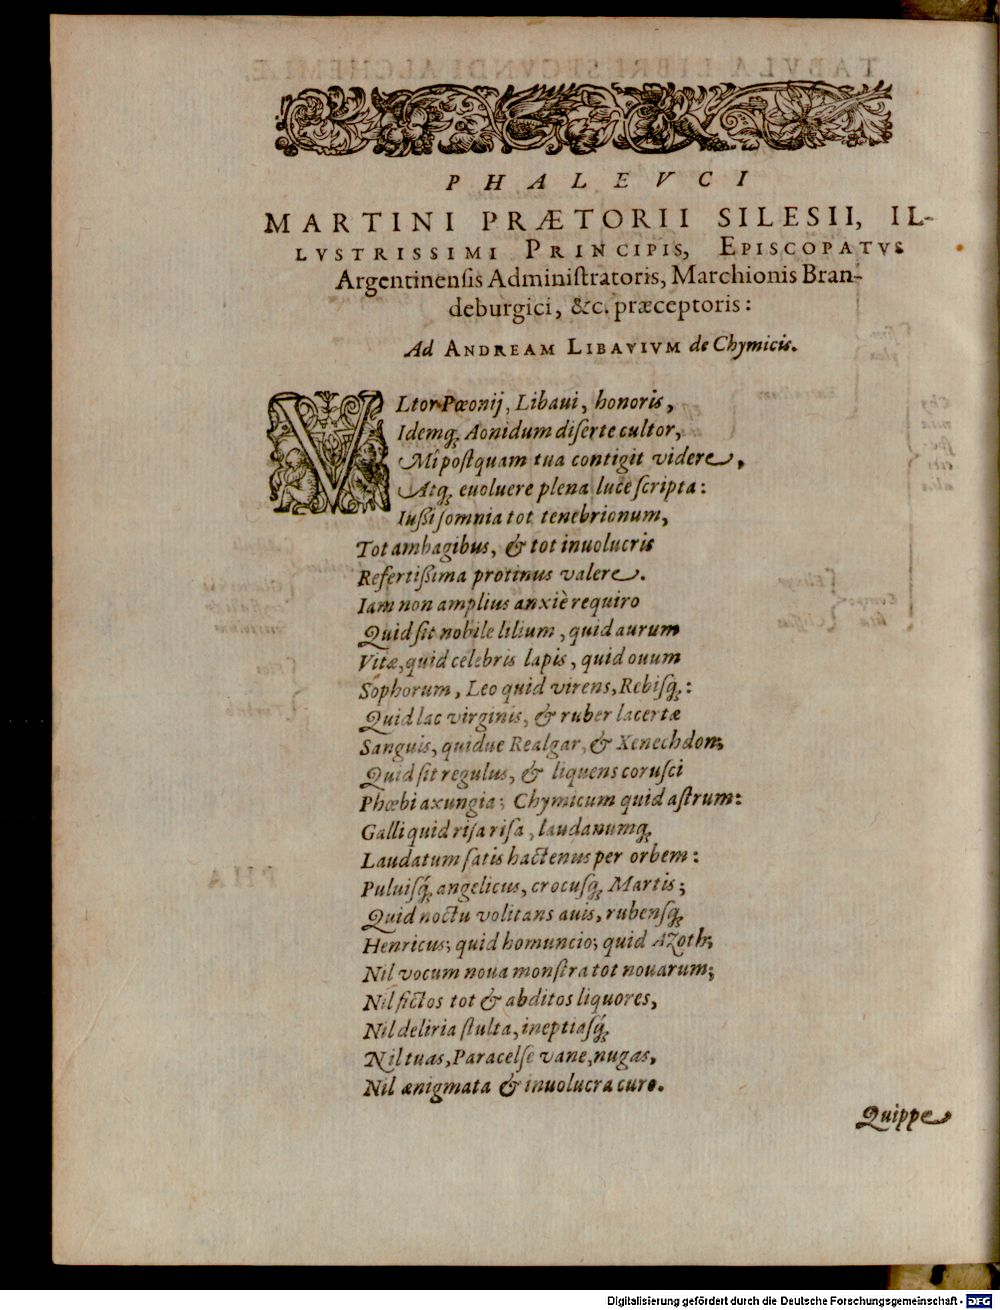 PHALEVCI
MARTINI PRÆTORII SILESII, IL-
LVSTRISSIMI PRINCIPIS, EPISCOPATVS
Argentinensis Administratoris, Marchionis Bran-
deburgici, &c. præceptoris:
Ad ANDREAM LIBAVIVM de Chymicis.
VLtor Pœonij, Libaui, honoris,
Idemq; Aonidum diserte cultor,
Mî postquam tua contigit videre,
Atq; euoluere plena luce scripta:
Iußi somnia tot tenebrionum,
Tot ambagibus, & tot inuolucris
Refertißima protinus valere.
Iam non amplius anxiè requiro
Quid sit nobile lilium, quid aurum
Vitæ, quid celebris lapis, quid ouum
Sophorum, Leo quid virens, Rebisq;:
Quid lac virginis, & ruber lacertæ
Sanguis, quidue Realgar, & Xenechdon;
Quid sit regulus, & liquens corusci
Phœbi axungia; Chymicum quid astrum:
Galli quid risa risa, laudanumq;
Laudatum satis hactenus per orbem:
Puluisq́; angelicus, crocusq; Martis;
Quid noctu volitans auis, rubensq;
Henricus; quid homuncio; quid AZoth;
Nil vocum noua monstra tot nouarum;
Nil fictos tot & abditos liquores,
Nil deliria stulta, ineptiasq́;
Nil tuas, Paracelse vane, nugas,
Nil ænigmata & inuolucra curo.
Quippe
Digitalisierung gefördert durch die Deutsche Forschungsgemeinschaft - DFG